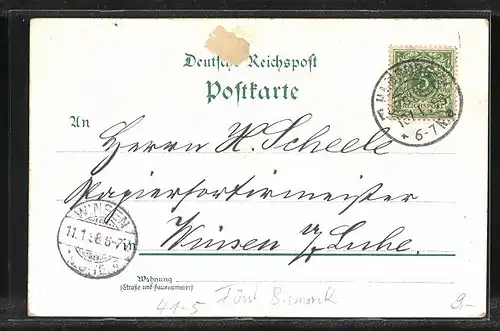 Deutsche Reichspost
Postkarte
An
Herrn H. Scheele
Papiersortirmeister
in Winsen a/ Luhe.
WINSEN
11.1.98.6-7
6-7N
5
Wohnung
(Straße und Hausnummer)
41-5 Fürst Bismarck
9.-